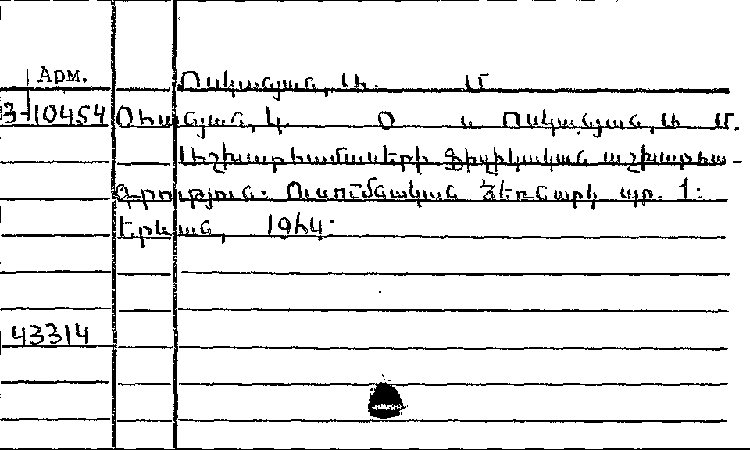 Арм. Ոսկանյան, Ա. Մ
3-10454 Օհանյան, Կ. Օ և Ոսկանյան, Ա. Մ.
Աշխարհամասերի ֆիզիկական աշխարհա-
գրություն. Ուսումնական ձեռնարկ պր. 1:
Երևան, 1964:
43314